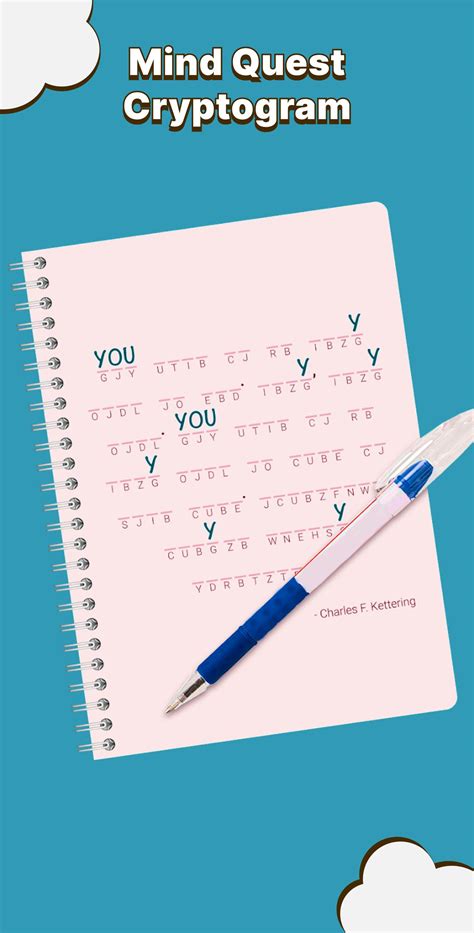 Mind Quest
Cryptogram
YOU Y
GJY UTIB CJ RB IBZG
Y Y
OJDL JO EBD. IBZG, IBZG
YOU
OJDL. GJY UTIB CJ RB
Y
IBZG OJDL JO CUBE CJ
SJIB CUBE. JCUBZFNW
Y Y
CUBGZB WNEHS
YDRBTZT
- Charles F. Kettering